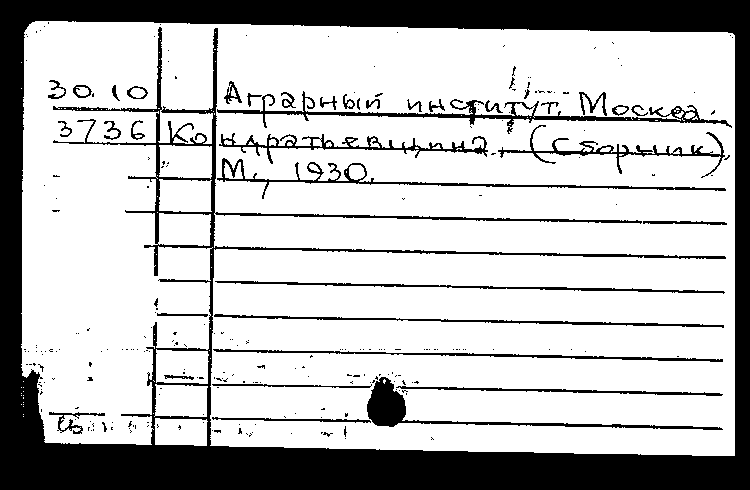 30.10 Аграрный институт. Москва.
3736 Кондратьевщина. (Сборник).
М., 1930.